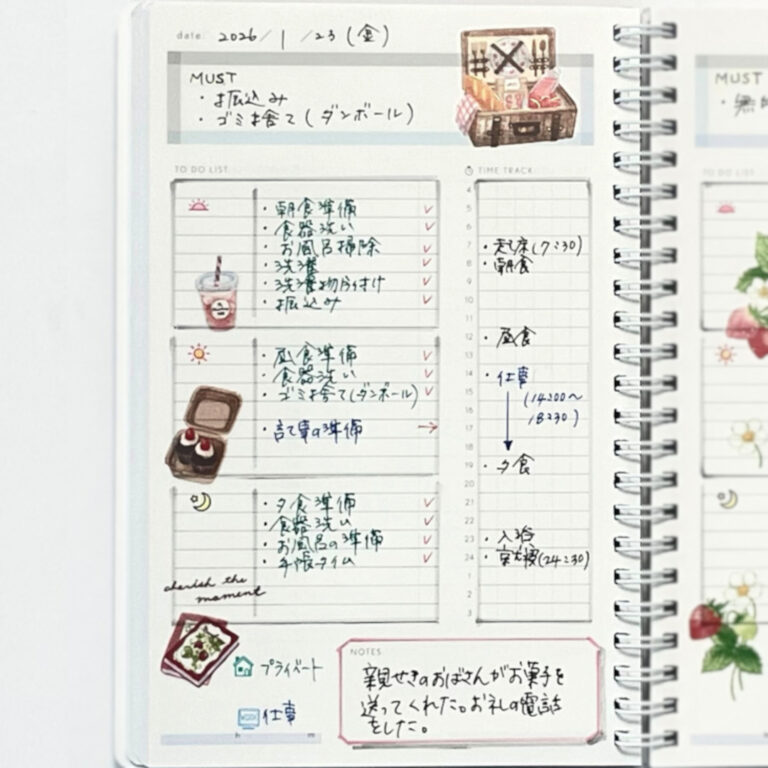 date: 2026/1/23(金)
MUST
・振込み
・ゴミ捨て(ダンボール)
TO DO LIST
・朝食準備 ✓
・食器洗い ✓
・お風呂掃除 ✓
・洗濯 ✓
・洗濯物片付け ✓
・振込み ✓
・昼食準備 ✓
・食器洗い ✓
・ゴミ捨て(ダンボール) ✓
・記事の準備 →
・夕食準備 ✓
・食器洗い ✓
・お風呂の準備 ✓
・手帳タイム ✓
cherish the
moment
プライベート
WORK 仕事
TIME TRACK
4
5
6
7 ・起床(7:30)
8 ・朝食
9
10
11
12 ・昼食
13
14 ・仕事
15 (14:00〜
16 18:30)
17
18
19 ・夕食
20
21
22
23 ・入浴
24 ・就寝(24:30)
1
2
3
NOTES
親せきのおばさんがお菓子を
送ってくれた。お礼の電話
をした。
MUST
TO DO LIST